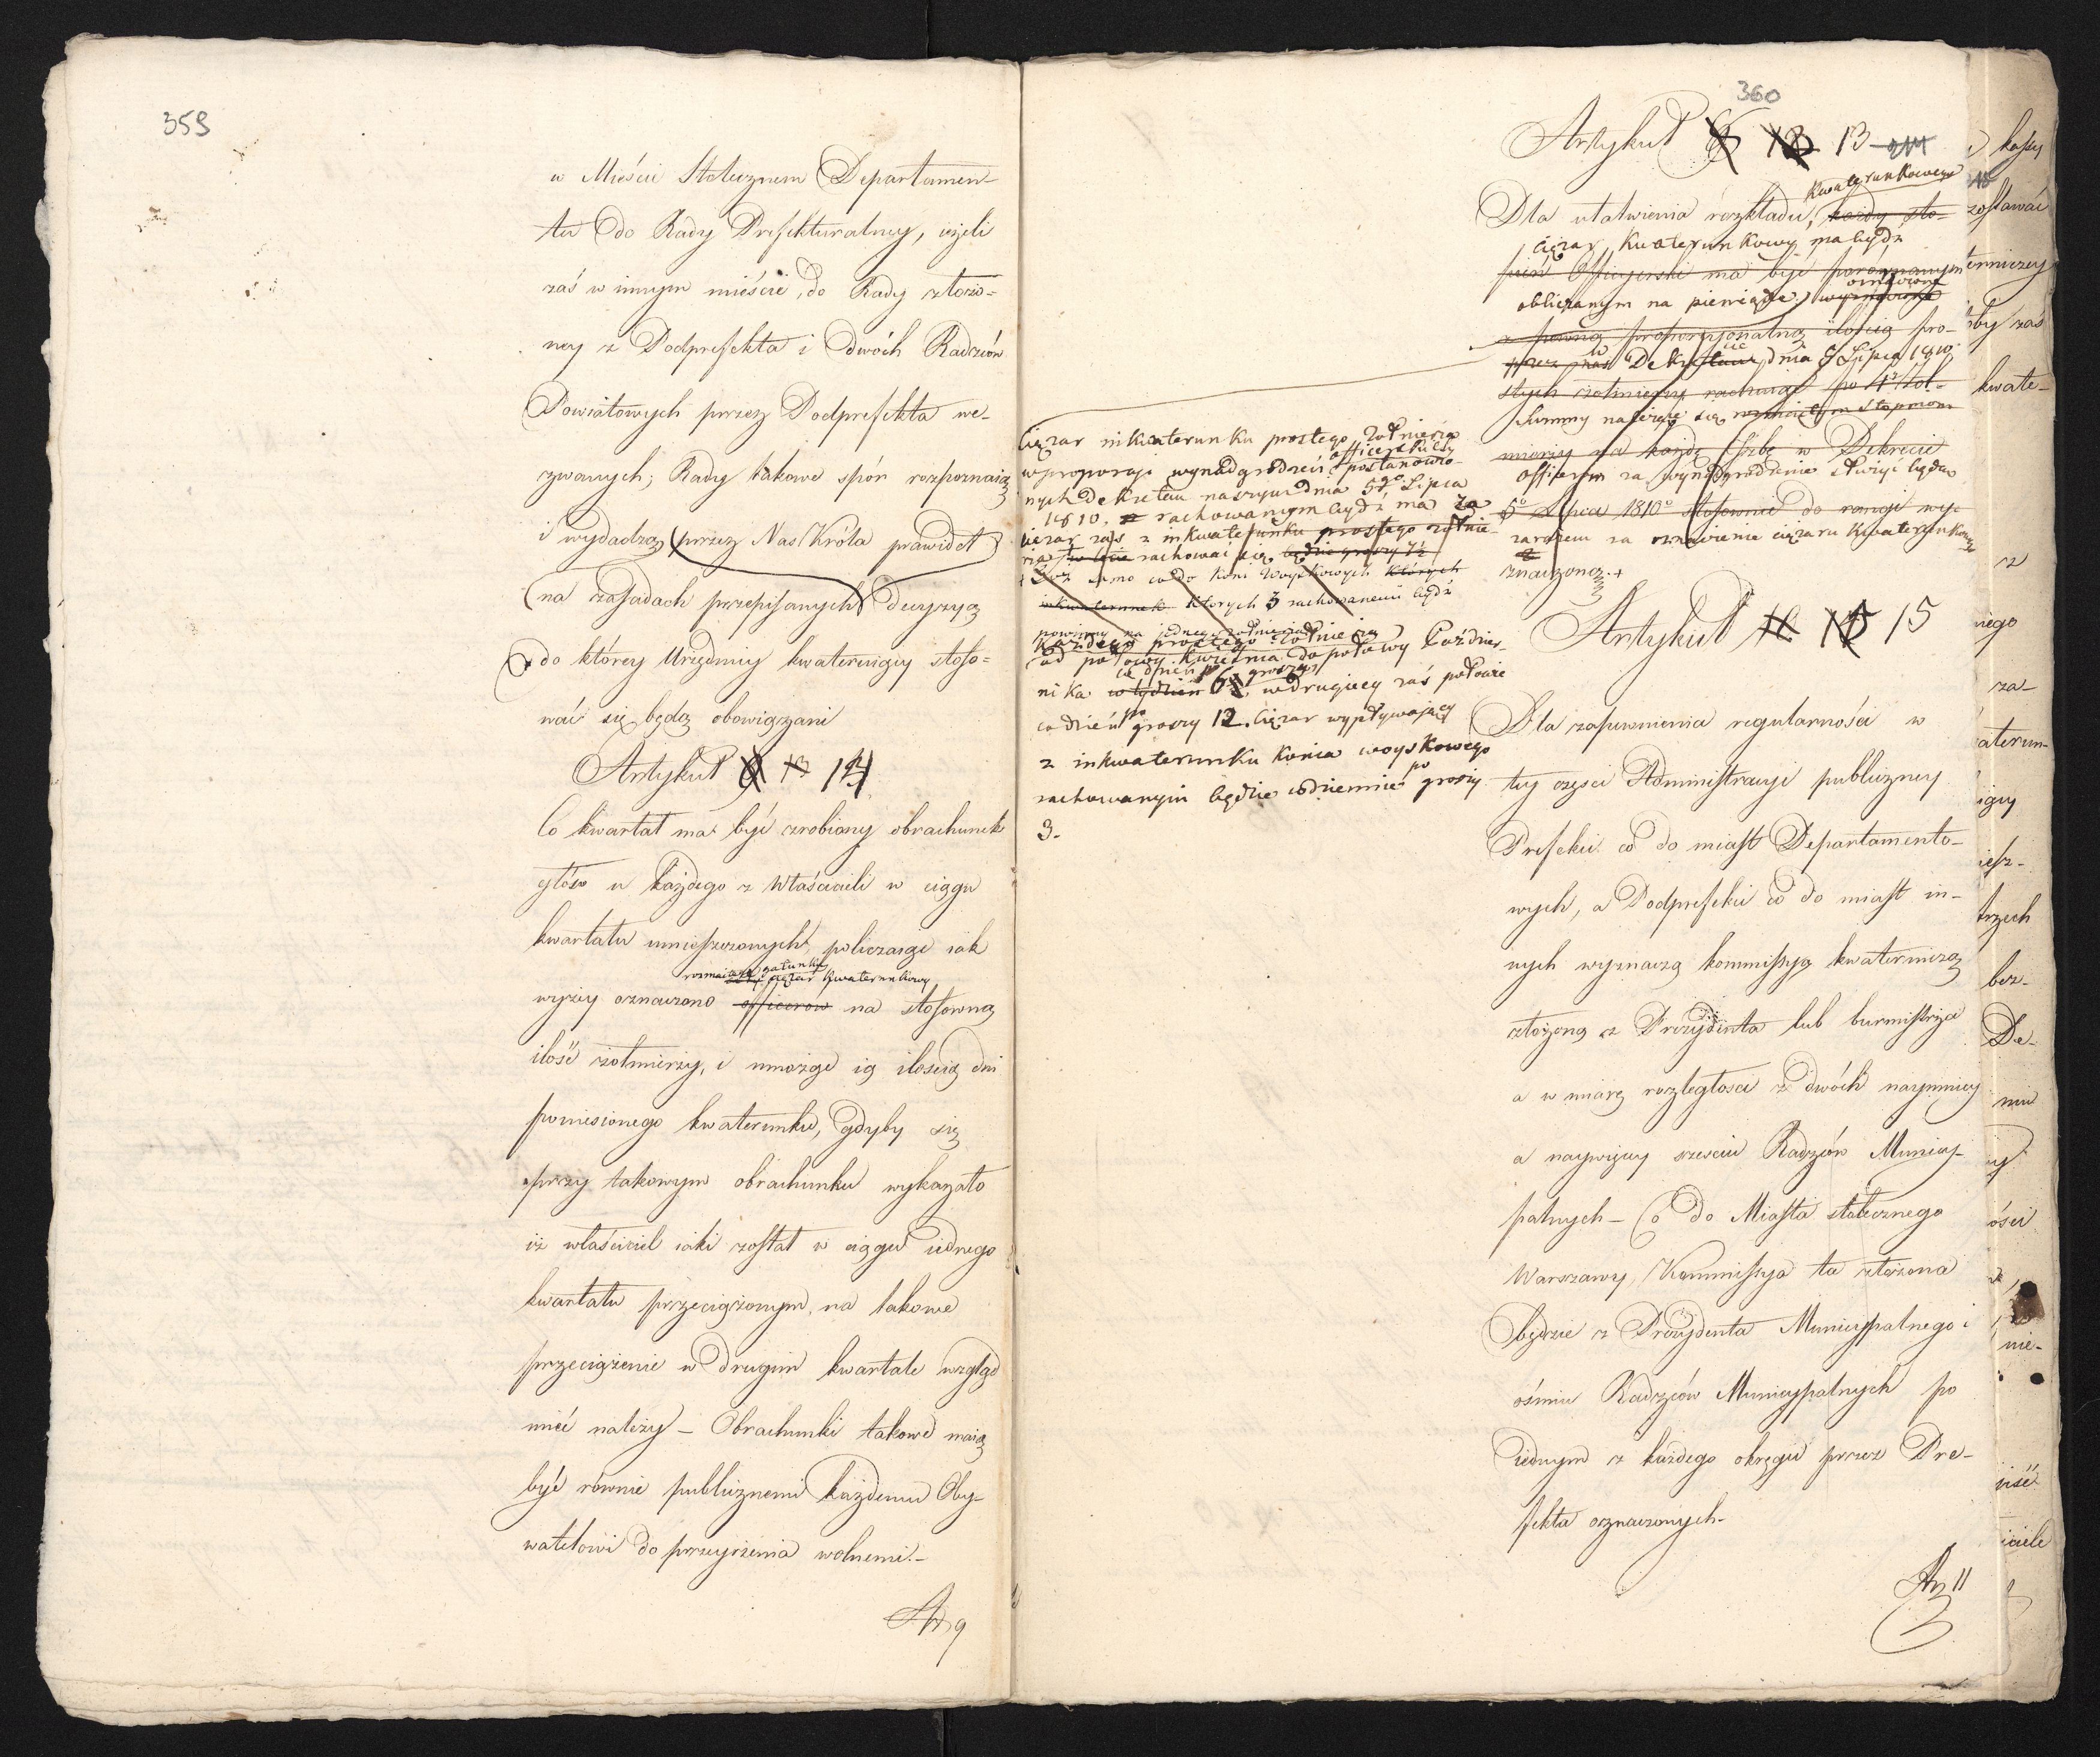 359
w Mieście Stołecznem Departamen-
tu do Rady Prefekturalney, ieżeli
zaś w innym mieście, do Rady złożo=
ney z Podprefekta i dwóch Radzców
Powiatowych przez Podprefekta we-
zwanych; Rady takowe spór rozpoznaią
i wydadzą (przez Nas Króla prawideł)
(na zasadach przepisanych) decyzyą
do którey Urzędnicy kwaterniczy stoso=
wać się będą obowiązani
Artykuł 14
Co kwartał ma być zrobiony obrachunek
głów u każdego z Właścicieli w ciągu
kwartału umieszczonych policzaiąc iak
rozmaitego gatunku
ciężar kwaterunkowy
wyżey oznaczono officerów na stosowną
ilość żołnierzy, i mnożąc ią ilością dni
poniesionego kwaterunku, gdyby się
przy takowym obrachunku wykazało
iż właściciel iaki został w ciągu iednego
kwartału przeciążonym, na takowe
przeciążenie w drugim kwartale wzgląd
mieć należy – Obrachunki takowe maią
być równie publicznemi każdemu Oby-
watelowi do przeyrzenia wolnemi.-
Ar 9
360
Artykuł 13
kwaterunkowego
Dla ułatwienia rozkładu, każdy sto-
ciężar kwaterunkowy ma bydź
pień Officyerski ma być porównanym
obliczanym na pieniądze.
z pewną proporcjonalną ilością pro-
przez nas Dekretem dnia 5 Lipca 1810.
stych żołnierzy rachuiąc po 4 żoł-
summy należące się
mierzy na każdą Izbę w Dekrecie
officerom za wynadgrodzenie służyć będą
5º Lipca 1810º stosownie do rangi wy-
zarazem za oznaczenie ciężaru kwaterunkowego
znaczoną.+
Ciężar inkwaterunku prostego żołnierza
officerskich
w proporcji wynadgrodzeń postanowio-
nych dekretem naszym dnia 5go Lipca
1810. rachowanym bydź ma za
ciężar zaś z inkwaterunku prostego żołnie-
rza rachować się będzie groszy
samo co do koni woyskowych których
inkwaterunek których 3 rachowanemi bydź
powinny za jednego żołnierza
każdego prostego żołnierza
od połowy kwietnia do połowy Paździer-
co dzień po groszy
nika w tydzień 6, w drugiey zaś połowie
co dzień po groszy 12. Ciężar wypływający
z inkwaterunku konia woyskowego
rachowanym będzie codziennie po groszy
3.
Artykuł 15
Dla zapewnienia regularności w
tey części Administracyi publiczney
Prefekci co do miast Departamento-
wych, a Podprefekci co do miast in-
nych wyznaczą kommissyą kwaterniczą
złożoną z Prezydenta lub burmistrza
a w miarę rozległości z dwóch naymniey
a naywięcy sześciu Radzców Municy-
palnych – Co do Miasta stołecznego
Warszawy, Kommissya ta złożona
będzie z Prezydenta Municypalnego i
ośmiu Radzców Municypalnych po
iednym z każdego okręgu przez Pre-
fekta oznaczonych-
Ar 11
zostawać
terniczey
by zaś
kwate-
z
niego
za-
aterun-
trzech
bez-
De-
ości
nie-
iciele